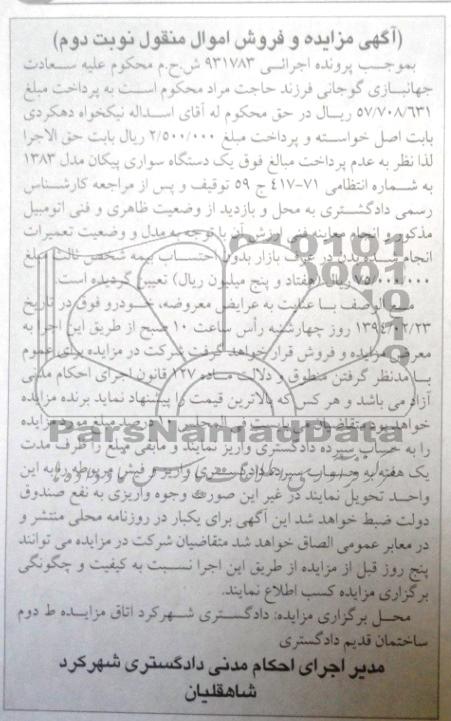 (آگهی مزایده و فروش اموال منقول نوبت دوم)
بموجب پرونده اجرائی ۹۳۱۷۸۳ ش.ح.م محکوم علیه سعادت
جهانبازی گوجانی فرزند حاجت مراد محکوم است به پرداخت مبلغ
۵۷/۷۰۸/۶۳۱ ریال در حق محکوم له آقای اسداله نیکخواه دهکردی
بابت اصل خواسته و پرداخت مبلغ ۲/۵۰۰/۰۰۰ ریال بابت حق الاجرا
لذا نظر به عدم پرداخت مبالغ فوق یک دستگاه سواری پیکان مدل ۱۳۸۳
به شماره انتظامی ۷۱-۴۱۷ ج ۵۹ توقیف و پس از مراجعه کارشناس
رسمی دادگستری به محل و بازدید از وضعیت ظاهری و فنی اتومبیل
مذکور و انجام معاینه فنی ارزش آن با توجه به مدل و وضعیت تعمیرات
انجام شده بدن در عرف بازار بدون احتساب بیمه شخص ثالث مبلغ
۷۵/۰۰۰/۰۰۰ ریال (هفتاد و پنج میلیون ریال) تعیین گردیده است.
با عنایت به عرایض معروضه، خودرو فوق در تاریخ
۱۳۹۴/۰۲/۲۳ روز چهارشنبه رأس ساعت ۱۰ صبح از طریق این اجرا به
معرض مزایده و فروش قرار خواهد گرفت شرکت در مزایده برای عموم
با مدنظر گرفتن منطوق و دلالت ماده ۱۲۷ قانون اجرای احکام مدنی
آزاد می باشد و هر کس که بالاترین قیمت را پیشنهاد نماید برنده مزایده
خواهد بود متقاضیان می بایست فی المجلس ۱۰ درصد مبلغ مورد مزایده
را به حساب سپرده دادگستری واریز نمایند و مابقی مبلغ را ظرف مدت
یک هفته به حساب سپرده دادگستری واریز و فیش مربوطه را به این
واحد تحویل نمایند در غیر این صورت وجوه واریزی به نفع صندوق
دولت ضبط خواهد شد این آگهی برای یکبار در روزنامه محلی منتشر و
در معابر عمومی الصاق خواهد شد متقاضیان شرکت در مزایده می توانند
پنج روز قبل از مزایده از طریق این اجرا نسبت به کیفیت و چگونگی
برگزاری مزایده کسب اطلاع نمایند.
محل برگزاری مزایده: دادگستری شهرکرد اتاق مزایده ط دوم
ساختمان قدیم دادگستری
مدیر اجرای احکام مدنی دادگستری شهرکرد
شاهقلیان
ParsNamadData